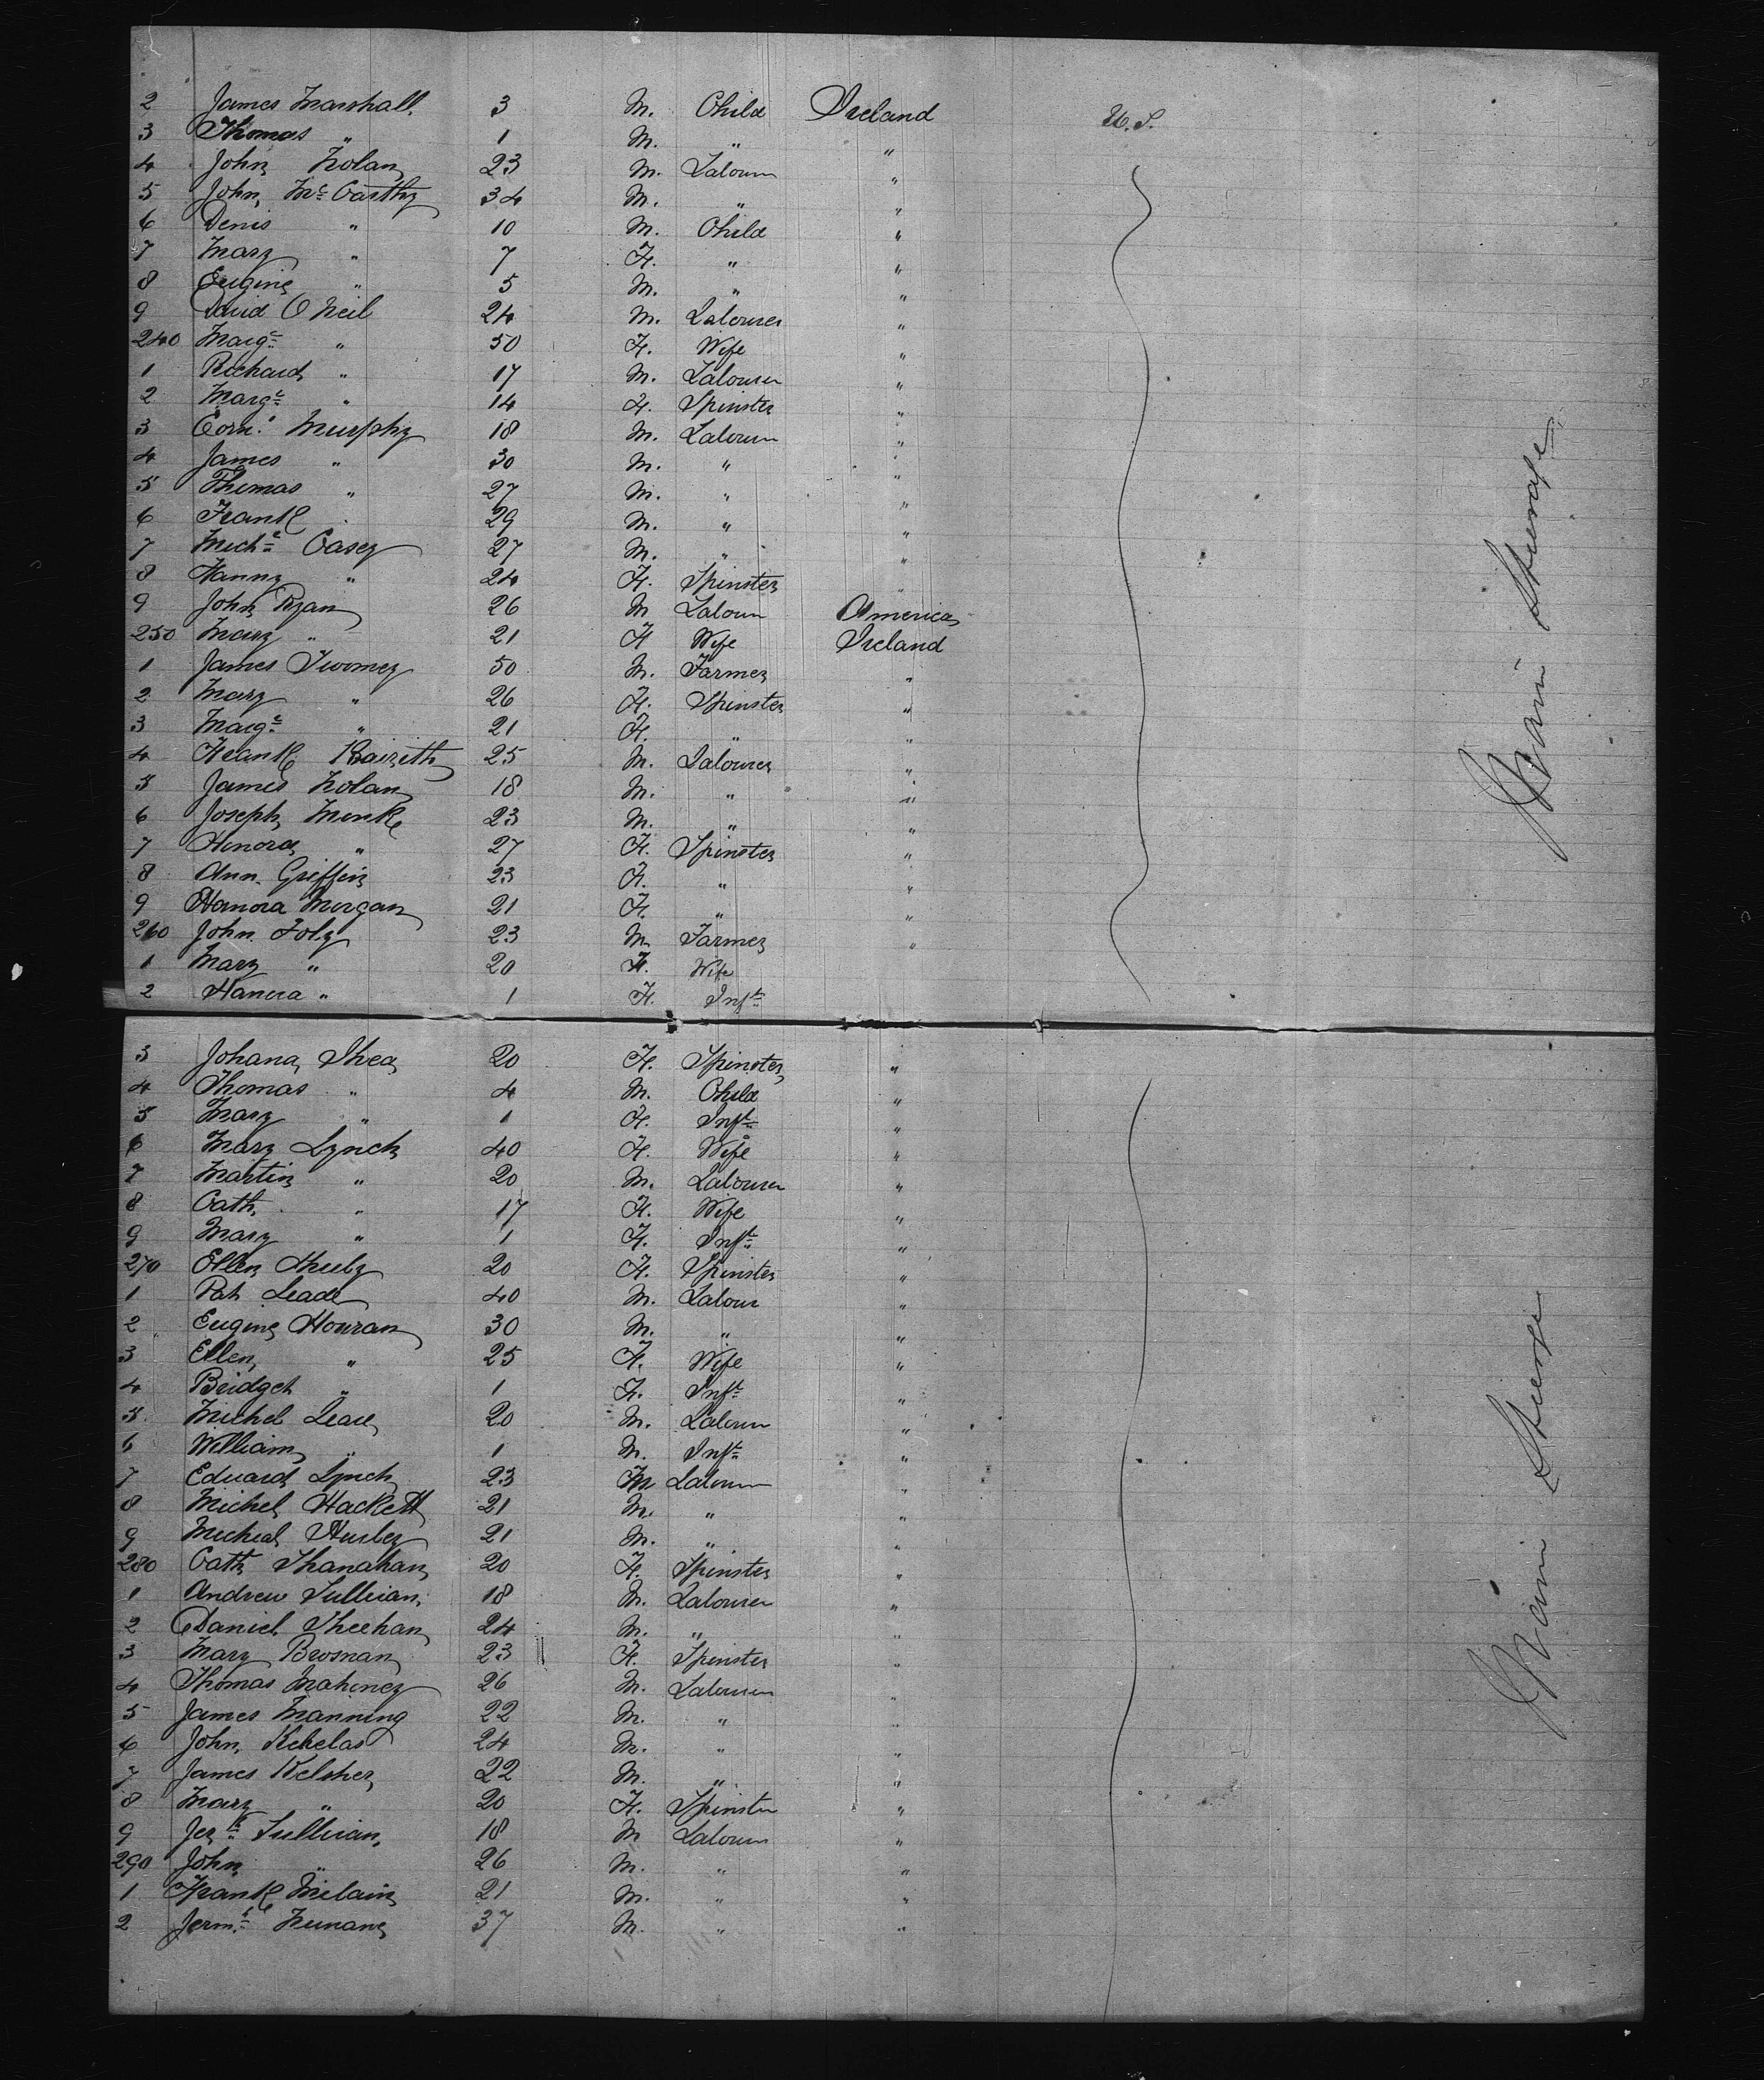 2 James Marshall. 3 M. Child Ireland U.S.
3 Thomas " 1 M. " "
4 John Nolan 23 M. Labourer "
5 John McCarthy 34 M. " "
6 Denis " 10 M. Child "
7 Mary " 7 F. " "
8 Eugine " 5 M. " "
9 David O Neil 24 M. Labourer "
240 Margt " 50 F. Wife "
1 Richard " 17 M. Labourer "
2 Margt " 14 F. Spinster "
3 Corns Murphy 18 M. Labourer "
4 James " 30 M. " "
5 Thomas " 27 M. " "
6 Frank " 29 M. " "
7 Michl Casey 27 M. " "
8 Hanny " 24 F. Spinster "
9 John Ryan 26 M Labour America
250 Mary " 21 F Wife Ireland
1 James Twomey 50 M. Farmer "
2 Mary " 26 F. Spinster "
3 Margt " 21 F. " "
4 Frank 25 M. Labourer "
5 James Nolan 18 M. " "
6 Joseph Monke 23 M. " "
7 Honora " 27 F. Spinster "
8 Ann Griffin 23 F. " "
9 Hanora Morgan 21 F. " "
260 John Foly 23 M. Farmer "
1 Mary " 20 F. Wife
2 Hanora " 1 F. Inft
3 Johana Shea 20 F. Spinster "
4 Thomas " 4 M. Child "
5 Mary " 1 F. Inft "
6 Mary Lynch 40 F. Wife "
7 Martin " 20 M. Labourer "
8 Cath. " 17 F. Wife "
9 Mary " 1 F. Inft "
270 Ellen 20 F. Spinster "
1 Pat Leade 40 M. Labour "
2 Eugine Houran 30 M. " "
3 Ellen " 25 F. Wife "
4 Bridget " 1 F. Inft "
5 Michel 20 M. Labour "
6 William " 1 M. Inft "
7 Edward Lynch 23 M Labourer "
8 Michel Hackett 21 M. " "
9 Micheal Hurley 21 M. " "
280 Cath Shanahan 20 F. Spinster "
1 Andrew Sullivan. 18 M. Labourer "
2 Daniel Sheehan 24 M. " "
3 Mary Brosnan 23 F. Spinster "
4 Thomas Mahoney 26 M. Labourer "
5 James Manning 22 M. " "
6 John 24 M. " "
7 James Kelsher 22 M. " "
8 Mary " 20 F. Spinster "
9 Jerh Sullivan. 18 M Labour "
290 John " 26 M. " "
1 Frank 21 M. " "
2 37 M. " "
Main Steerage
Main Steerage